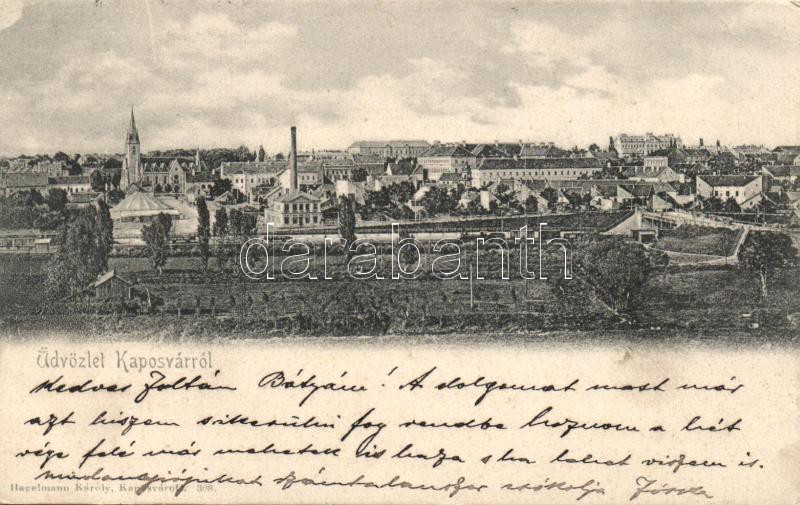 darabanth
Üdvözlet Kaposvárról
Kedves Zoltán Bátyám! A dolgomat most már
azt hiszem sikerülni fog rendbe hoznom a hét
vége felé már mehetek is haza s ha lehet viszem is.
mindnyájójukat számtalanszor csókolja Józska
Hagelmann Károly, Kaposvárott. 308.